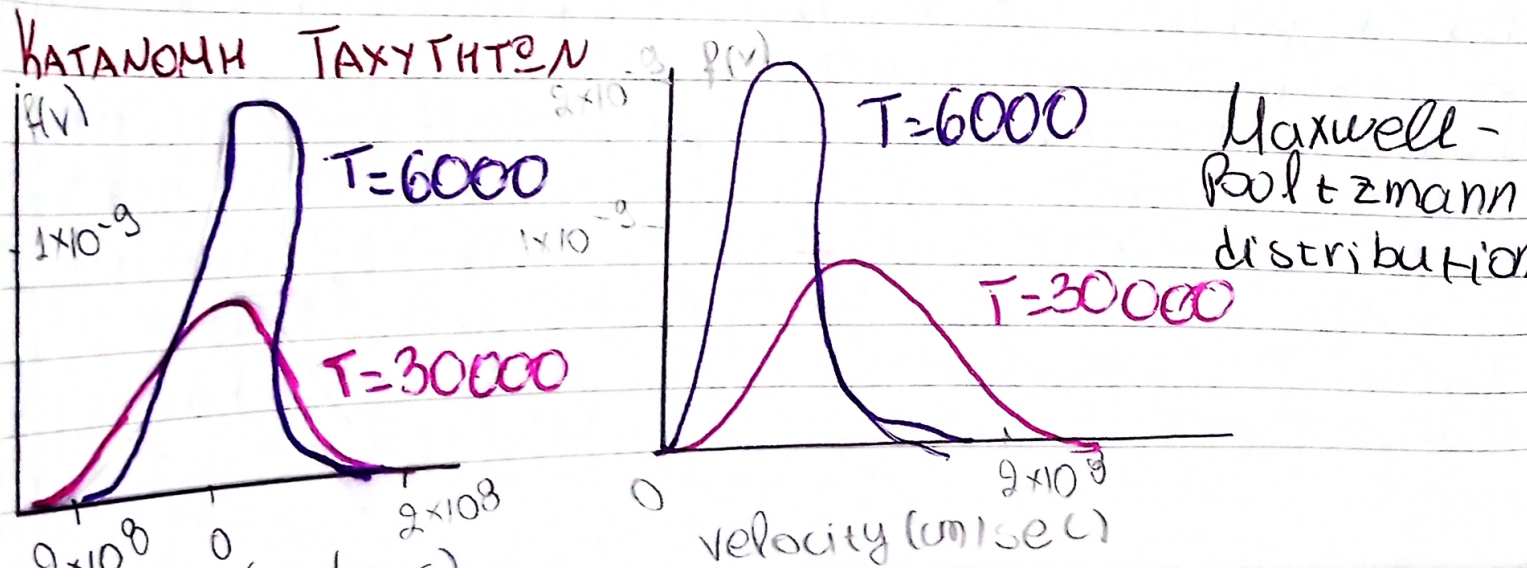 ΚΑΤΑΝΟΜΗ ΤΑΧΥΤΗΤΩΝ
f(v)
T=6000
1×10⁻⁹
T=30000
2×10⁸
0
2×10⁸
2×10⁻⁹
f(v)
T=6000
1×10⁻⁹
T=30000
0
2×10⁸
velocity (cm/sec)
Maxwell-
Boltzmann
distribution